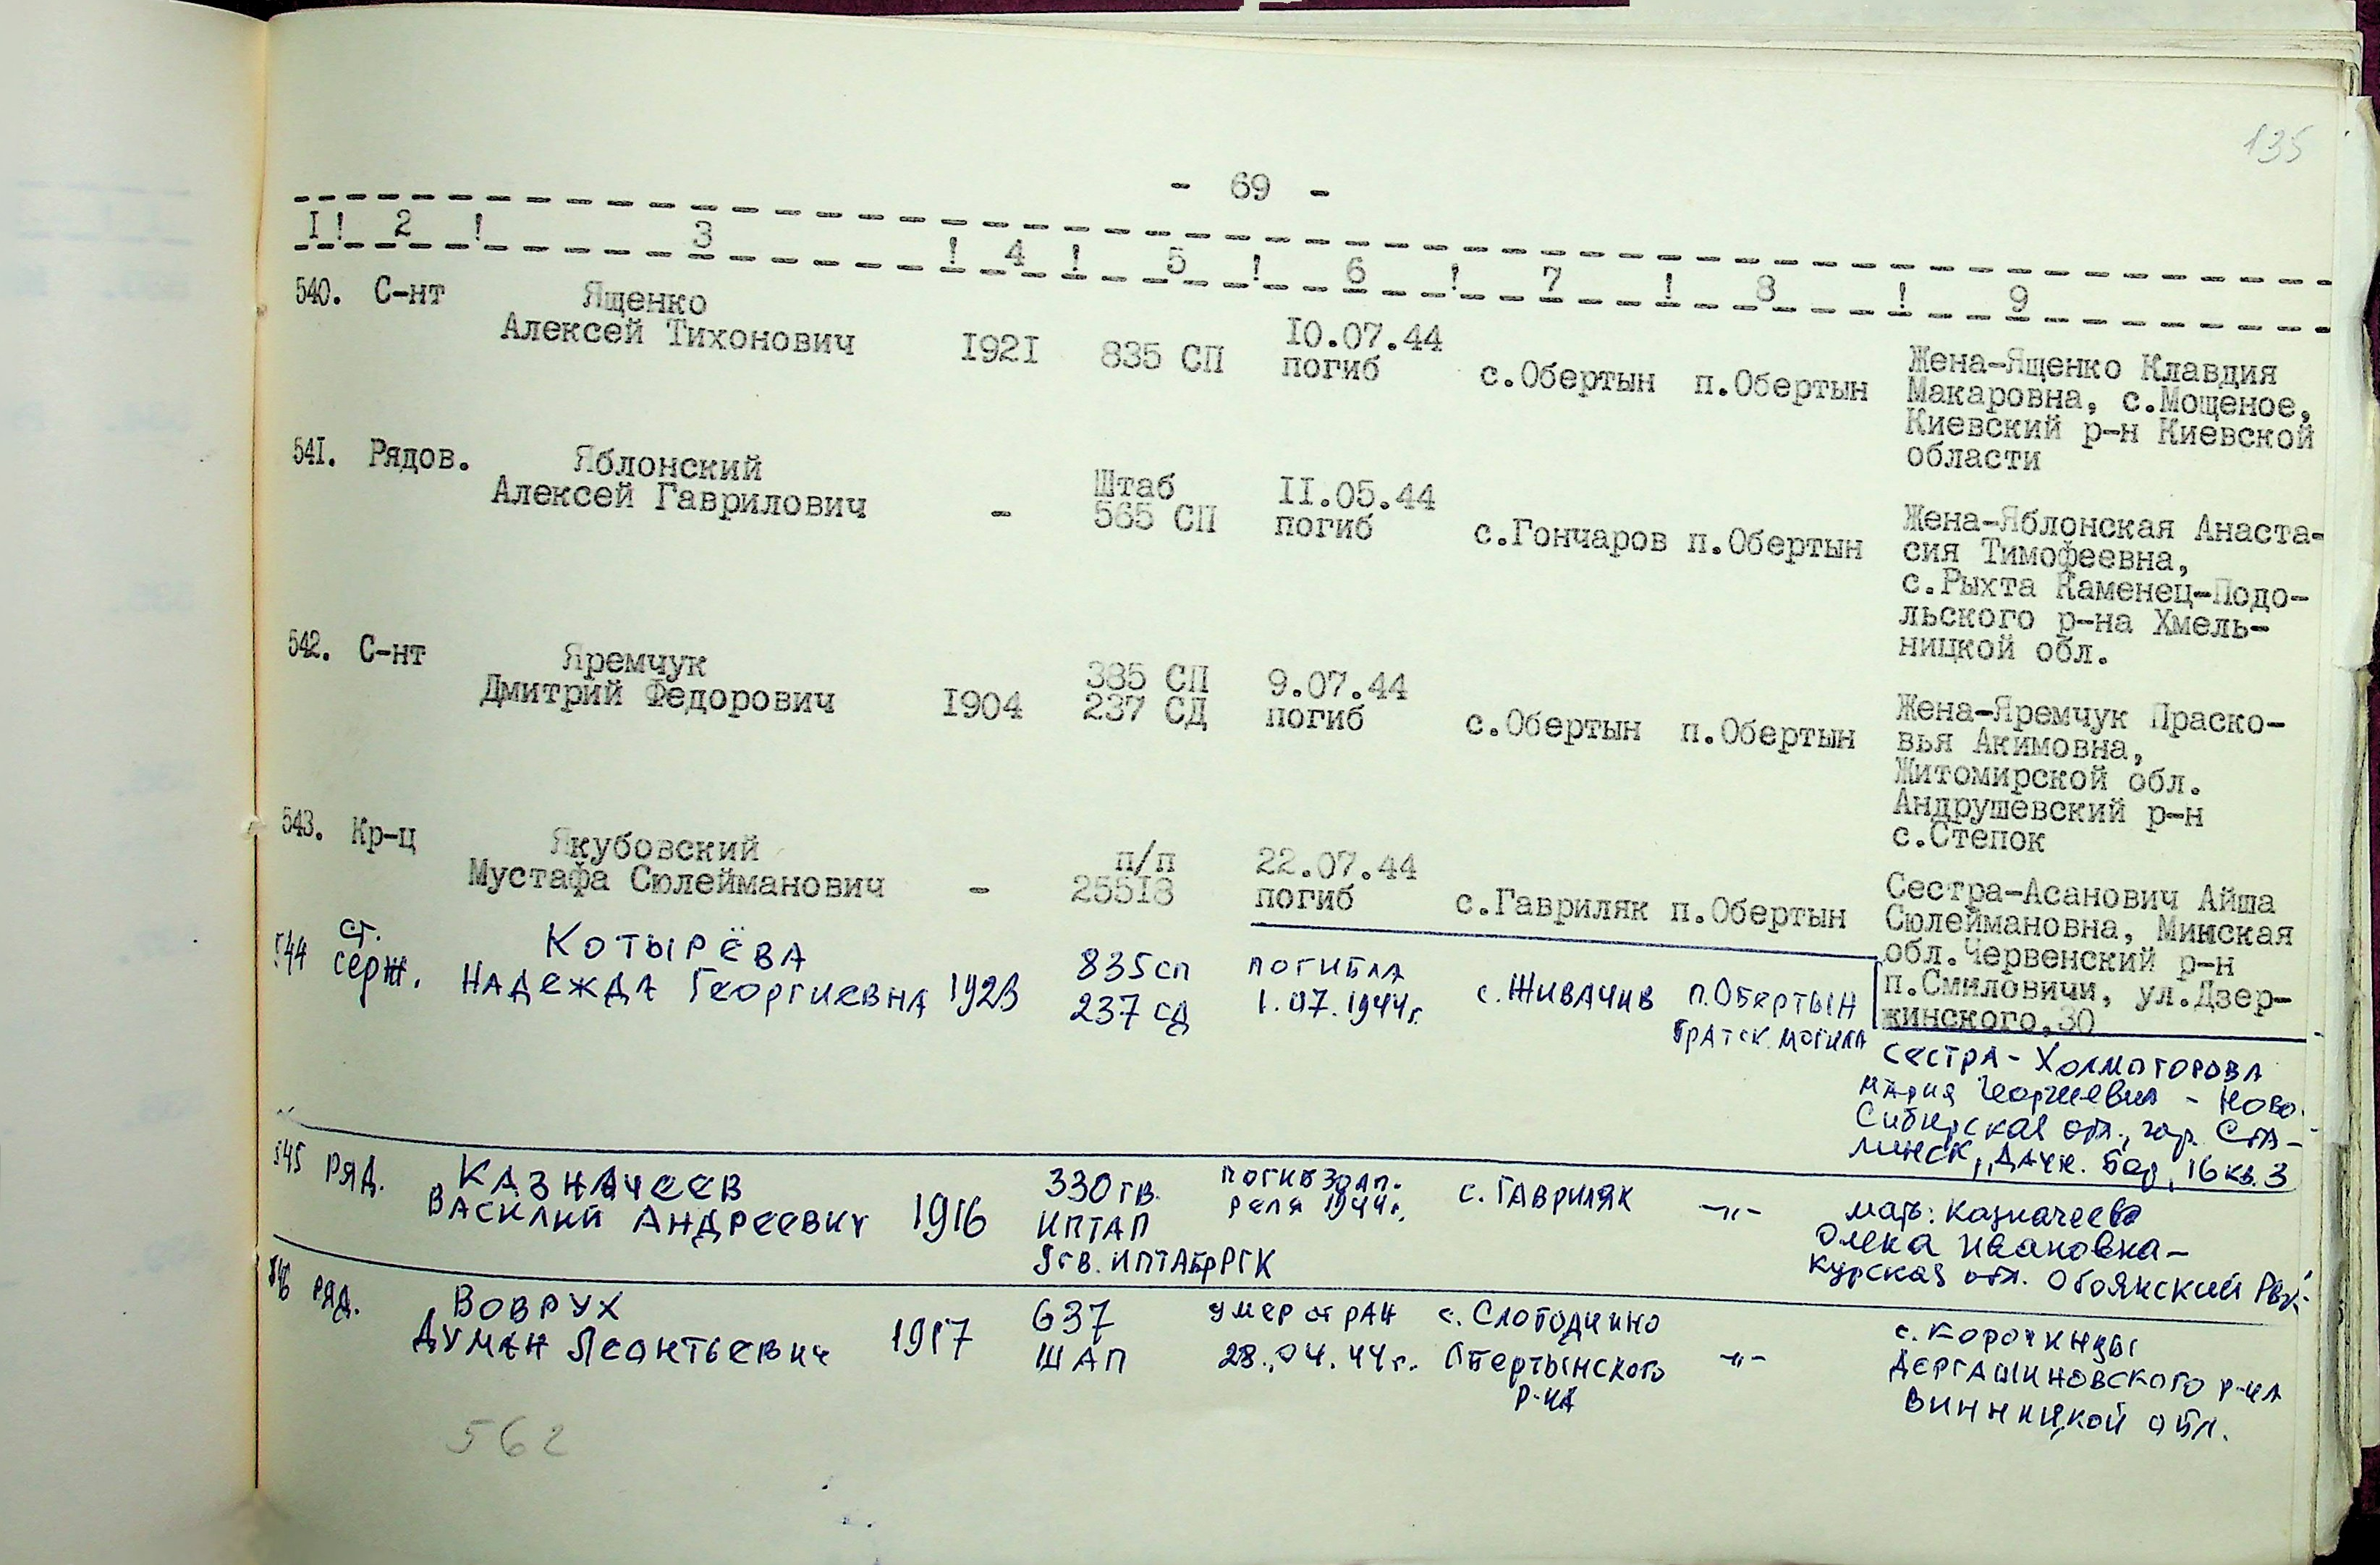 135
- 69 -
I ! 2 ! 3 ! 4 ! 5 ! 6 ! 7 ! 8 ! 9
540. С-нт Ященко
Алексей Тихонович 1921 835 СП 10.07.44 погиб с.Обертын п.Обертын Жена-Ященко Клавдия
Макаровна, с.Мощеное,
Киевский р-н Киевской
области
541. Рядов. Яблонский
Алексей Гаврилович - Штаб 565 СП 11.05.44 погиб с.Гончаров п.Обертын Жена-Яблонская Анаста-
сия Тимофеевна,
с.Рыхта Каменец-Подо-
льского р-на Хмель-
ницкой обл.
542. С-нт Яремчук
Дмитрий Федорович 1904 385 СП 237 СД 9.07.44 погиб с.Обертын п.Обертын Жена-Яремчук Праско-
вья Акимовна,
Житомирской обл.
Андрушевский р-н
с.Степок
543. Кр-ц Якубовский
Мустафа Сюлейманович - п/п 25518 22.07.44 погиб с.Гавриляк п.Обертын Сестра-Асанович Айша
Сюлеймановна, Минская
обл.Червенский р-н
п.Смиловичи, ул.Дзер-
жинского,30
544 ст. серж. Котырёва
Надежда Георгиевна 1923 835 сп 237 сд погибла 1.07.1944г. с.Живачив п.Обертын братск. могила сестра - Холмогорова
Мария Георгиевна - Ново-
Сибирская обл., гор. Ста-
линск, Дачн. 16 кв. 3
545 ряд. Казначеев
Василий Андреевич 1916 330 гв. ИПТАП 9 гв. ИПТАбрРГК погиб 30 ап-
реля 1944г. с. Гавриляк -"- мать: Казначеева
Ивановна-
Курская обл. Обоянский РВК.
546 ряд. Воврух
Думан Леонтьевич 1917 637 ШАП умер от ран 28.04.44г. с. Слободчино Обертынского р-на -"- с. Корочинцы
р-на
Винницкой обл.
562